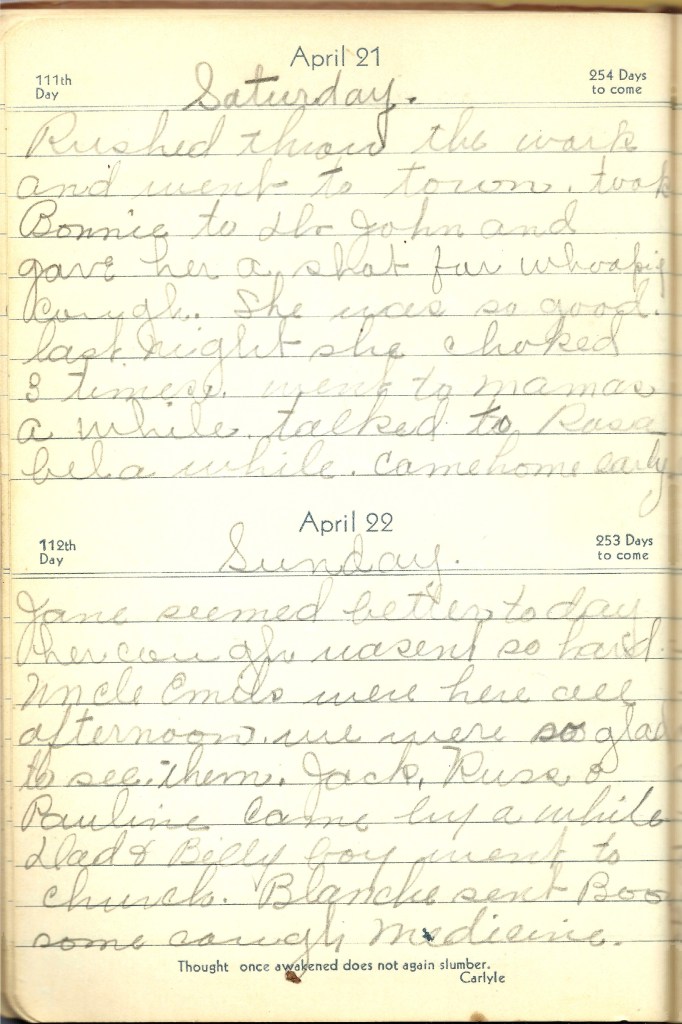 April 21
111th Day
254 Days to come
Saturday.
Rushed throw the work
and went to town. took
Bonnie to Dr John and
gave her a shot for whoopig
cough. She was so good.
last night she choked
3 times. went to mamas
a while. talked to Rosa
bel a while. came home early
April 22
112th Day
253 Days to come
Sunday.
Jane seemed better today
her cough wasent so hard.
Uncle Emils were here all
afternoon. we were so glad
to see them. Jack, Russ &
Pauline came by a while
Dad & Billy boy went to
church. Blanche sent Boo
some cough medicine.
Thought once awakened does not again slumber.
Carlyle